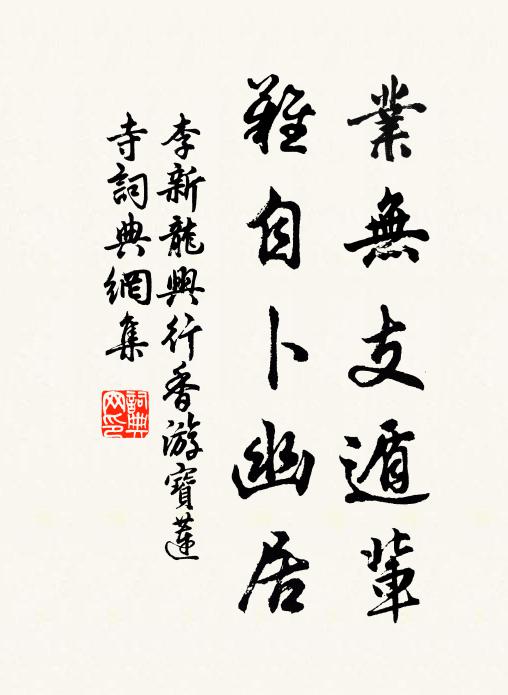 業無支遁輩
難自卜幽居
李新龍興行香游寶蓮
寺詞典網集
詞典
网印